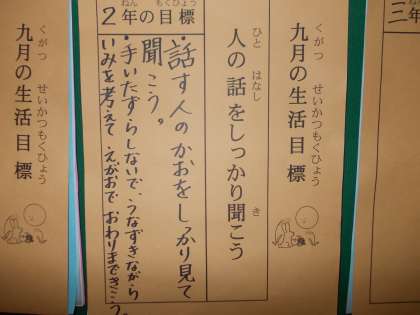 三年
くがつ せいかつもくひょう
九月の生活目標
ひと はなし き
人の話をしっかり聞こう
ねん もくひょう
2年の目標
・話す人のかおをしっかり見て
聞こう。
・手いたずらしないで、うなずきながら
いみを考えて えがおで おわりまできこう。
くがつ せいかつもくひょう
九月の生活目標